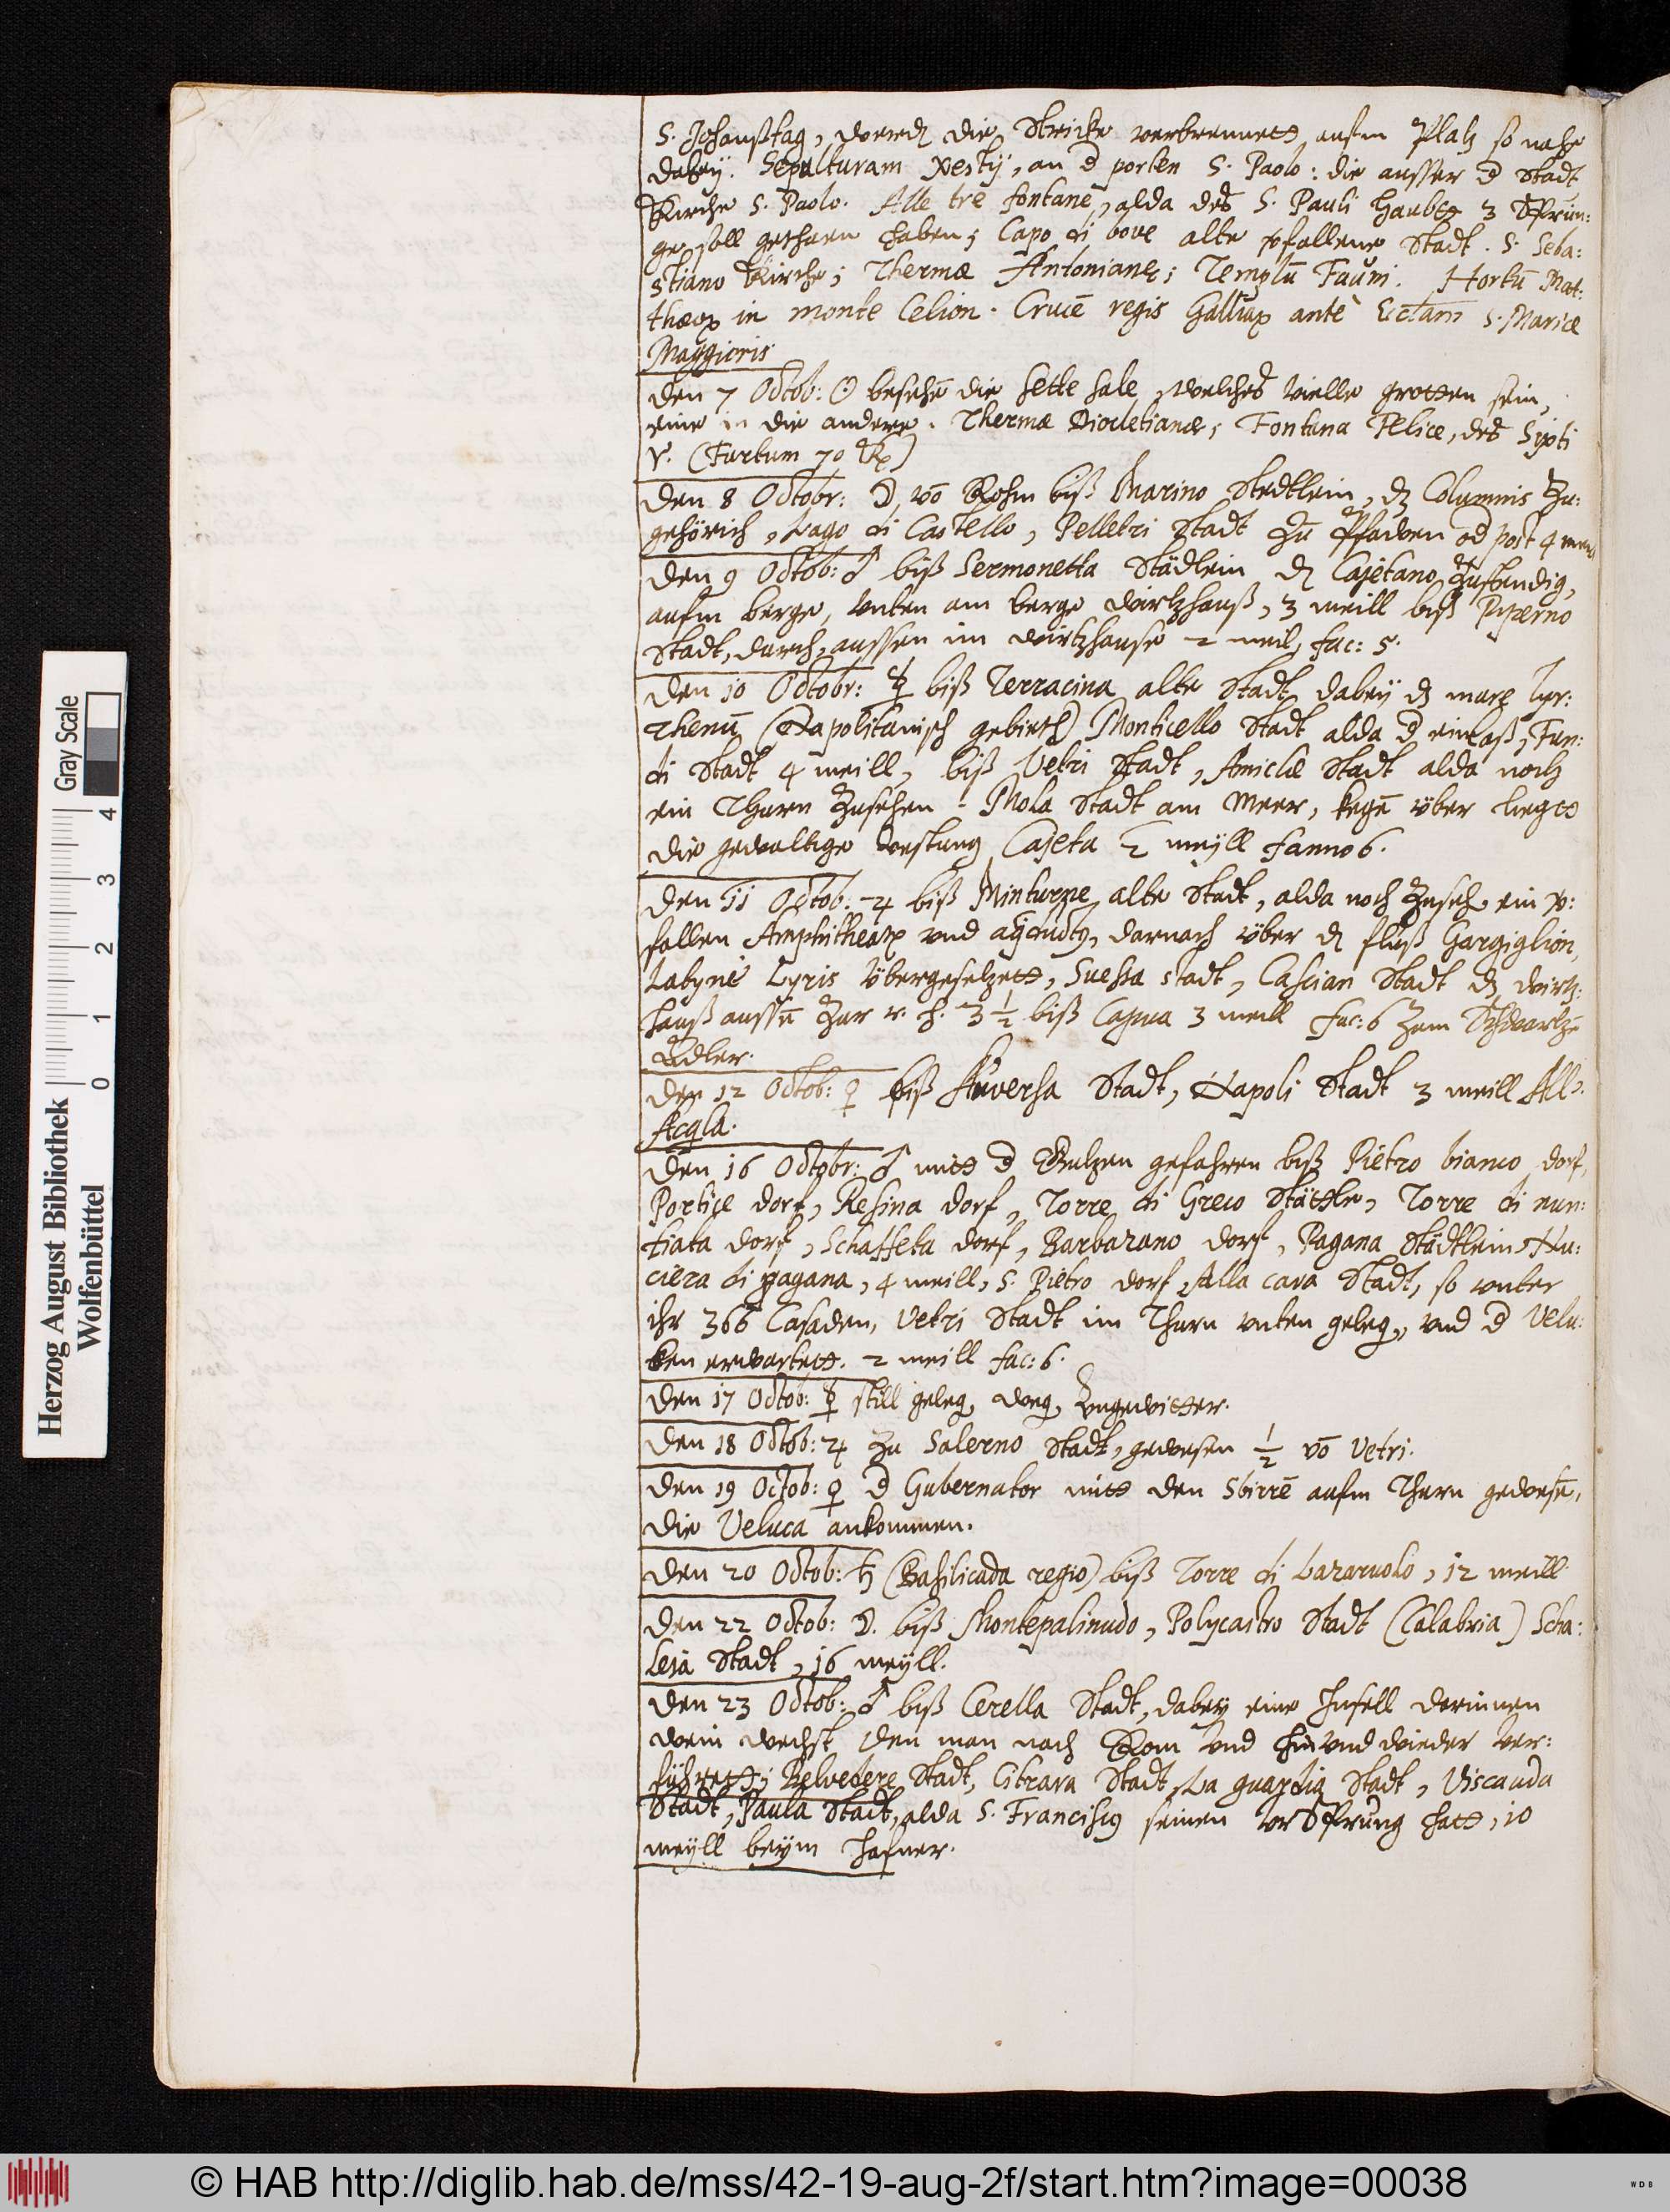 S. Johanßtag, werdẽ die Stricke verbrennett aufm Platz so nahe
dabey. Sepulturam Xesty, an d porten S. Paolo: die ausser d Stadt
Kirche S. Paolo. Alle tre fontane, alda des S. Pauli Haubtt 3 Sprün:
ge soll gethaen haben; Capo di bove alte vfallene Stadt. S. Seba:
stiano Kirche; Thermæ Antonianæ; Templū Fauni. Hortū Mat:
thæoꝝ in monte Celion. Crucē regis Galliaꝝ ante Ecclam S. Mariæ
Maggioris
Den 7 Octob: ☉ besehē die sette sale, welches vielle grotten sein,
eine in die andere. Thermæ Diocletianæ, Fontana Felice, des Sixti
V. (Furtum 70
Den 8 Octobr: ☽ vō Rohm biß Marino Stedtlein, dz Columnis Zu:
gehörich, Lago di Castello, Velletri Stadt zu Pfaden od post 4
Den 9 Octob: ♂ biß Sermonetta Städlein dz Cajetano Zustendig,
aufm berge, vnten am berge wirtzhauß, 3 meill biß Piperno
Stadt, durch, aussen im wirtzhause 2 meil, fac: 5.
Den 10 Octobr: ☿ biß Terracina alte Stadt dabey dz mare Tyr:
rhenū (Napolitanisch gebieth) Monticello Stadt alda d einlaß, Fun:
di Stadt 4 meill, biß Vetri Stadt, Amiclæ Stadt alda noch
ein Thurn Zusehen. Mola Stadt am Meer, kegē über liegtt
die gewaltige vestung Cajeta 2 meyll fanno 6.
Den 11 Octob. ♃ biß Minturne alte Stadt, alda noch Zuseh ein v:
fallen Amphitheatꝝ vnd aquæductꝰ, darnach über dz fluß Gargiglion,
Latynè Lyris übergesetzett, Suessa stadt, Cascian Stadt dz wirtz:
hauß aussē Zur r. h. 3 1/2 biß Capua 3 meill fac: 6 Zum Schwartzē
Adler.
Den 12 Octob: ♀ biß Auversa Stadt, Napoli Stadt 3 meill All'
Acqla.
Den 16 Octobr: ♂ mitt d gefahren biß Piétro bianco dorf,
Portice dorf, Resina dorf, Torre di Greco Stättle, Torre di nun:
tiata dorf, Schaffeta dorf, Barbazano dorf, Pagana Städtlein, Nu:
ciera di pagana, 4 meill, S. Piétro dorf, Alla cava Stadt, so vnter
ihr 366 Casaden, Vetri Stadt im Thurn vnten geleg., vnd d Velu:
ken erwartett. 2 meill fac: 6.
Den 17 Octob: ☿ still geleg. weg. Vngewitter.
Den 18 Octob: ♃ Zu Salerno Stadt, gewesen 1/2 vō Vetri.
Den 19 Octob: ♀ d Gubernator mitt den Sbirrē aufm Thurn gewesē,
die Veluca ankommen.
Den 20 Octob: ♄ (Basilicada regio) biß Torre di Lazaruolo, 12 meill
Den 22 Octob: ☽. biß Montepalinudo, Polycastro Stadt (Calabria) Scha:
Leja Stadt, 16 meyll.
Den 23 Octob: ♂ biß Cerella Stadt, dabey eine Insell dorinnen
wein wechst den man nach Rom Vnd hin vnd wieder Ver:
führett; Belvedere Stadt, Citrara Stadt, La guardia Stadt, Viscauda
Stadt, Paula Stadt, alda S. Franciscꝰ seinen VrSprung hatt, 10
meyll beym Hafner.
Gray Scale
0 1 2 3 4
Herzog August Bibliothek
Wolfenbüttel
© HAB http://diglib.hab.de/mss/42-19-aug-2f/start.htm?image=00038
WDB